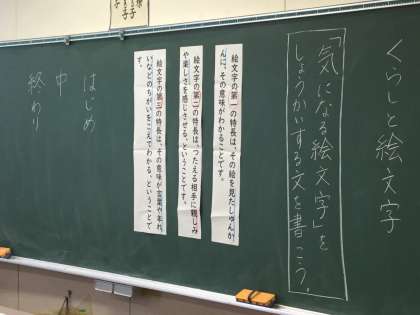 くらしと絵文字
「気になる絵文字」を
しょうかいする文を書こう。
絵文字の第一の特長は、その絵を見たしゅんか
んに、その意味がわかることです。
絵文字の第二の特長は、つたえる相手に親しみ
や楽しさを感じさせる、ということです。
絵文字の第三の特長は、その意味が言葉や年れ
いなどのちがいをこえてわかる、ということで
す。
はじめ
中
終わり